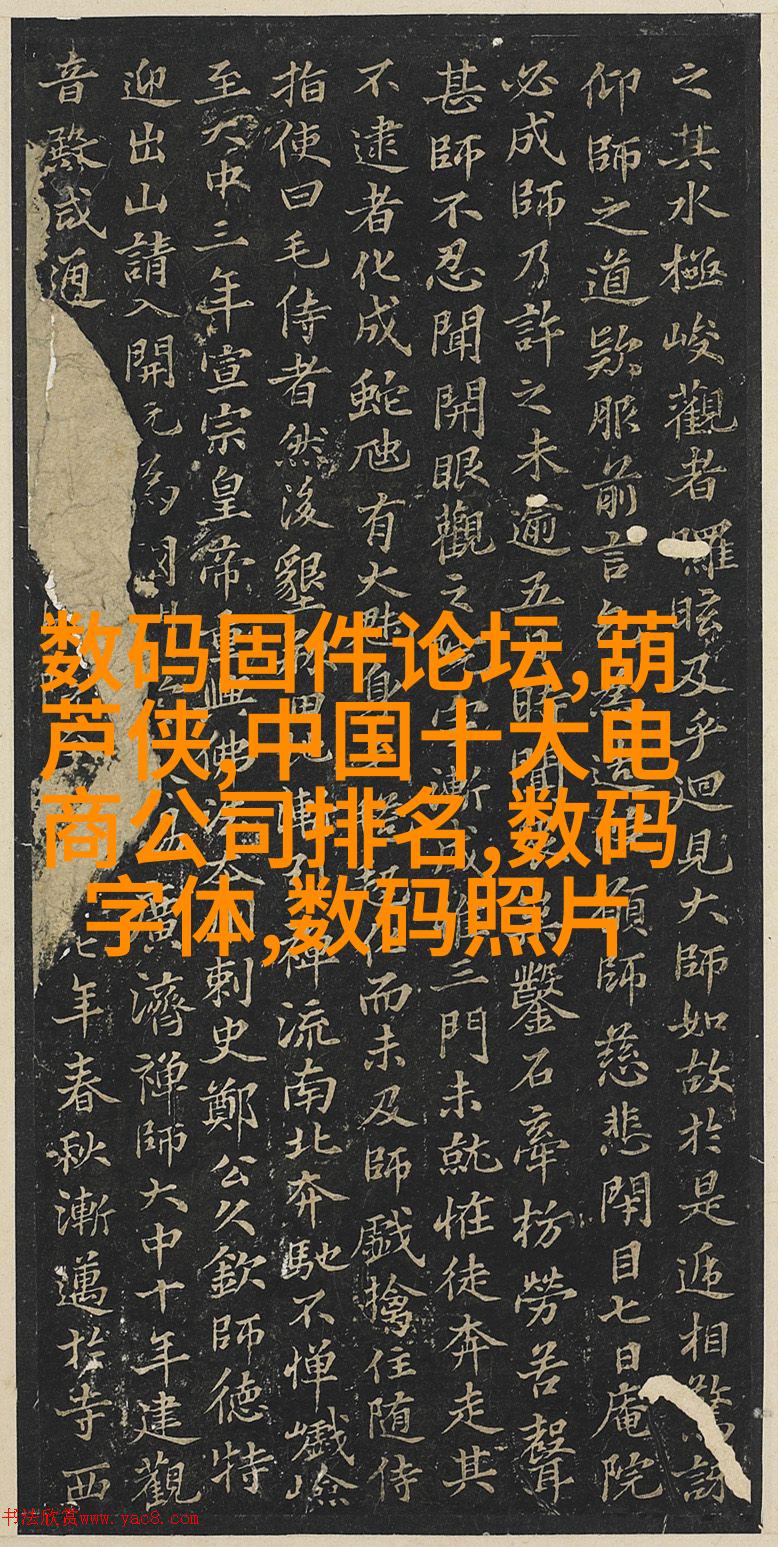 之其水極峻觀者眩及乎迴見大師如故於是遞相驚訝
仰師之道欵服前言願師慈悲閉目七日庵院
必成師乃許之未逾五日時聞鑿石牽枋勞苦聲
甚師不忍聞開眼觀之漸成惟三門未就怪徒奔走其
不逮者化成蛇虺有大魅身而未及師戲擒住随侍
指使曰毛侍者然後墾禪流南北奔馳不憚巇嶮
至大中三年宣宗皇帝重興佛法刺史鄭公久欽師德特
迎出山請入開元為國廣濟禪師大中十年建觀
音殿咸通七年春秋漸邁於寺西
数码固件论坛,葫
芦侠,中国十大电
商公司排名,数码
字体,数码照片
书法欣赏www.yac8.com